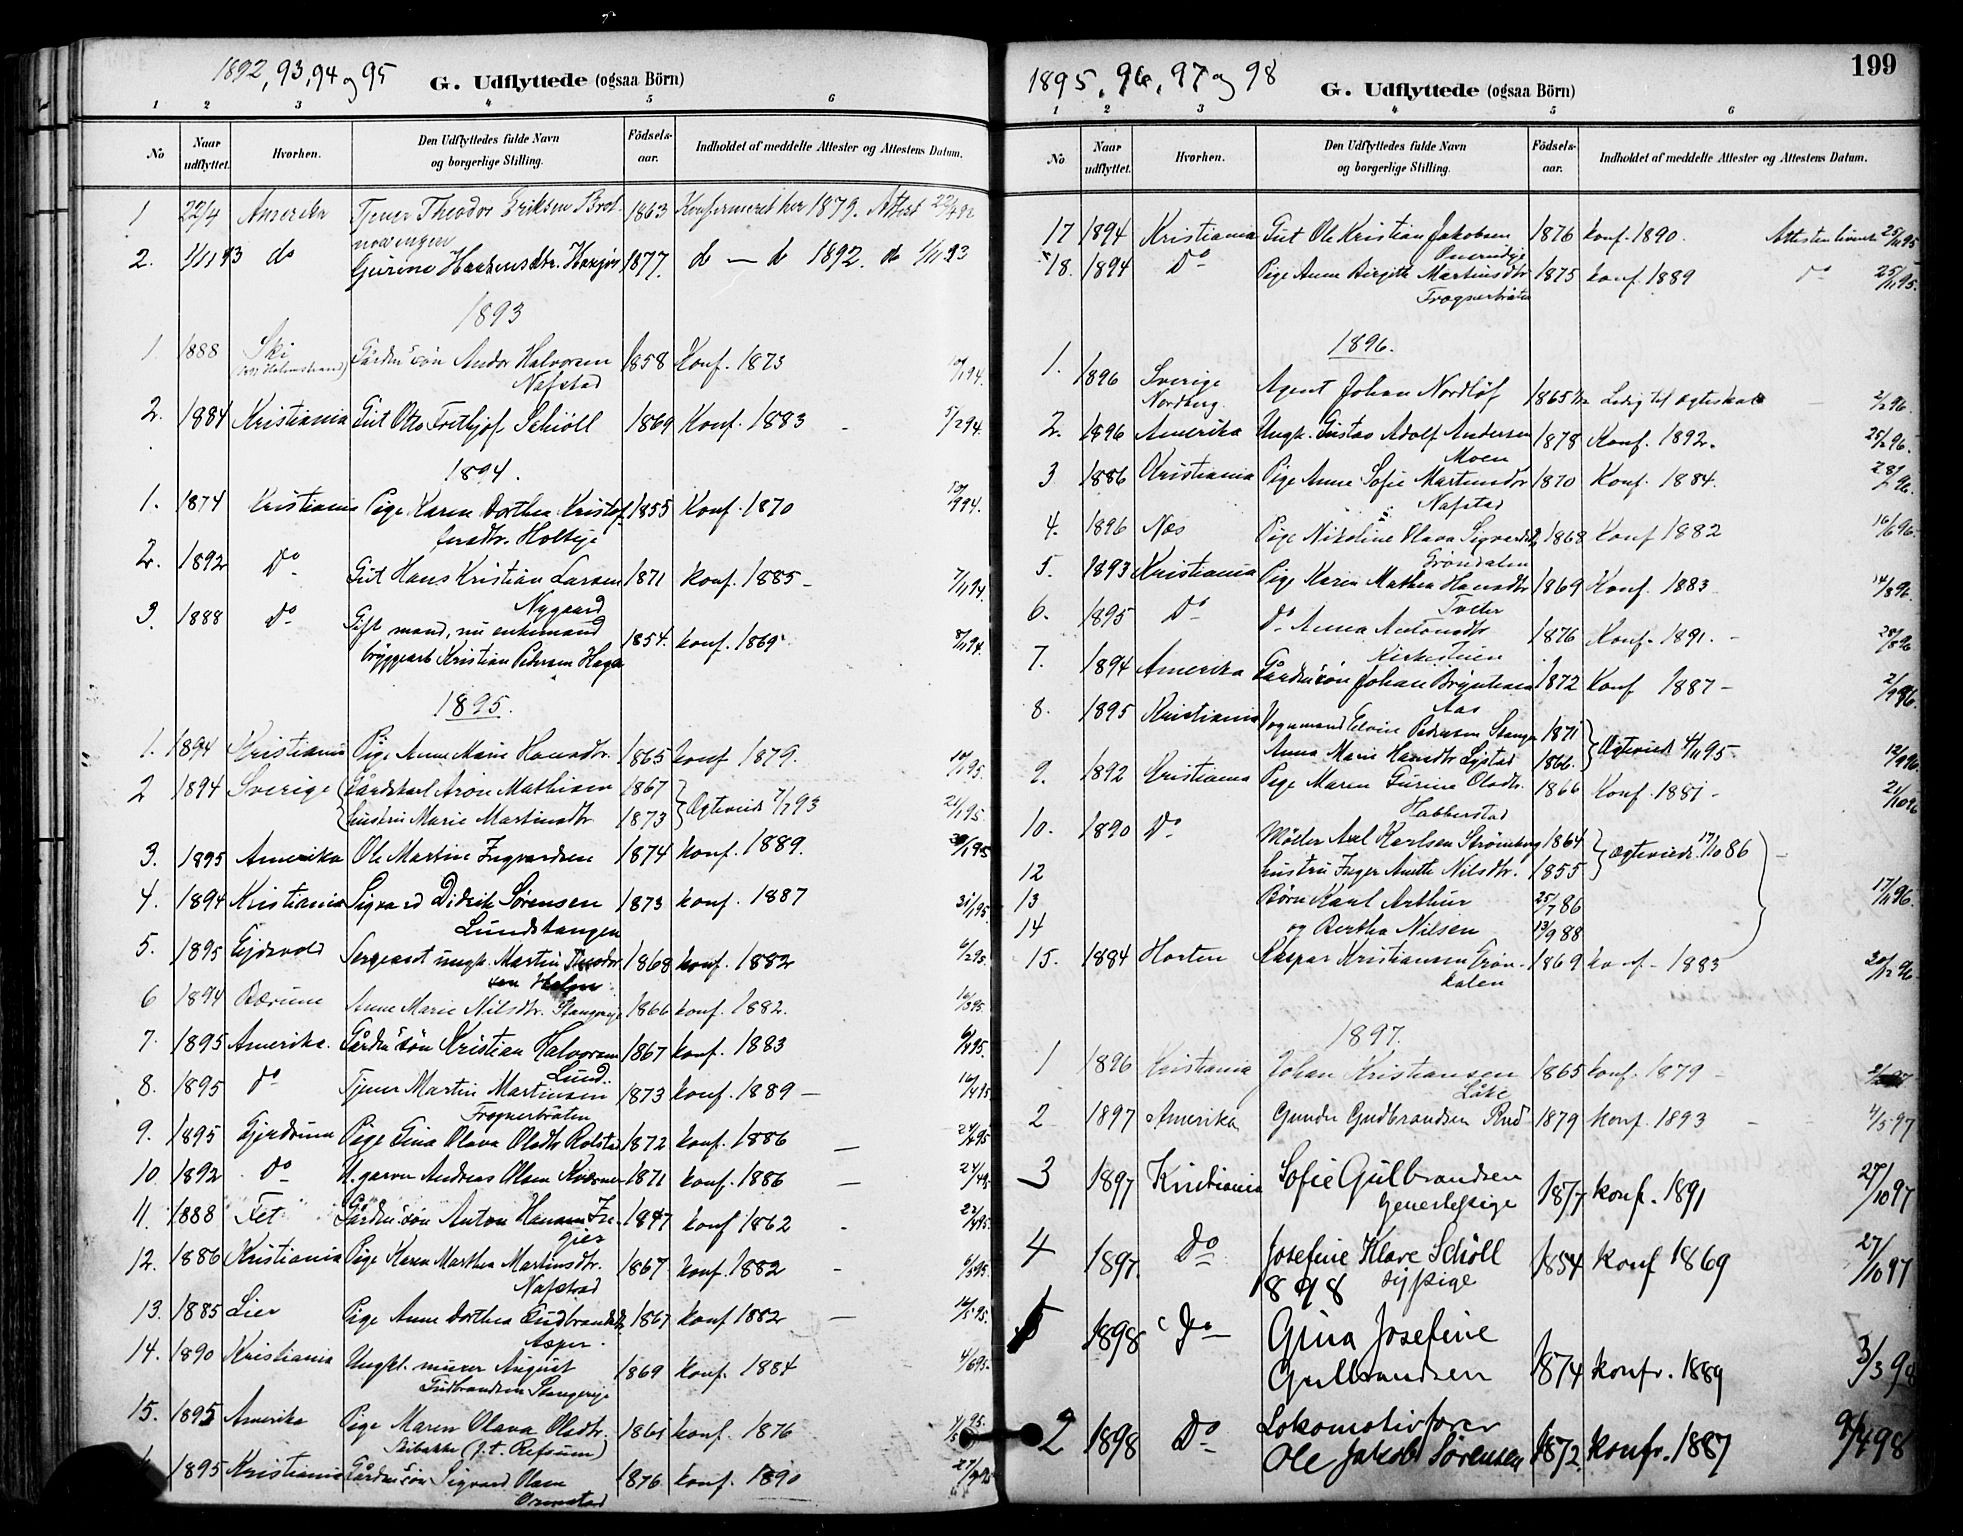 1892, 93, 94 og 95
G. Udflyttede (ogsaa Börn)
1 2 3 4 5 6
No | Naar udflyttet. | Hvorhen. | Den Udflyttedes fulde Navn og borgerlige Stilling. | Födsels-aar. | Indholdet af meddelte Attester og Attestens Datum.
1 22/4 Amerika Tjener Theodor Eriksen 1863 Konfirmeret her 1879. Attest 22/4 92
2. 1/11 93 do Gurine 1877. do — do 1892. do 1/11 93
1893
1. 1888 Ski Gårdm.søn Andor Halvorsen 1858 Konf. 1873
Nafstad
2. 1884 Kristiania Gut Otto Frithjof Schiöll 1869 Konf. 1883 5/2 94.
1894.
1. 1874 Kristiania Pige Karen Dorthea Kristof- 1855 Konf. 1870
fersdtr. Holteje
2. 1892 Do Gut Hans Kristian Larsen 1871 konf. 1885 – 7/11 94.
Nygaard
3. 1888 Do Gift mand, nu enkemand 1854. konf. 1869. 8/11 94.
bryggearb Kristian Pedersen Haga
1895.
1. 1894 Kristiania Pige Anne Marie Hansdtr. 1865 konf 1879.
2 1894 Sverige Gårdskarl Aron Mathisen 1867
hustru Marie Martinsdtr. 1873 Ægteviet 7/7 93
3. 1895 Amerika Ole Martin Ingvardsen 1874 konf. 1889.
4. 1894 Kristiania Sigvard Didrik Sørensen 1873 konf. 1887 31/1 95.
Lundstangen
5. 1895 Ejdsvold Sergeant ungk. Martin 1868 konf. 1882 6/2 95.
6 1894 Bærum Anne Marie Nilsdtr. Stangereje 1866 konf. 1882. 16/3 95.
7. 1895 Amerika. Gårdm.søn Kristian Halvorsen 1867 konf. 1883 6/4 95.
Lund.
8. 1895 Do Tjener Martin Martinsen 1873 konf. 1889 — 16/4 95
Frognerbråten
9. 1895 Gjerdrum Pige Gina Olava Olsdtr Rolstad 1872 konf. 1886 — 24/4 95
10. 1892 Do Andreas Olsen 1871 konf. 1886 —
11. 1888 Fet Gårdm.søn Anton Hansen 1847 konf 1862
12. 1886 Kristiania Pige Karen Marthea Martinsdtr. 1867 konf. 1882 6/5 95.
Nafstad
13. 1885 Lier Pige Anne Dorthea Gudbrandsdtr 1867 konf 1882 — 16/5 95.
Asper.
14. 1890 Kristiania Ungkl. murer August 1869 konf. 1884 4/6 95.
Gudbrandsen Stangereje
15. 1895 Amerika Pige Maren Olava Olsdtr. 1861 konf. 1876
Skibakke (f.t. Refsum)
1895 Kristiania Gårdm.søn Sigvard Olsen 1876. konf. 1890
Ormstad
1895, 96, 97 og 98
199
G. Udflyttede (ogsaa Börn)
1 2 3 4 5 6
No | Naar udflyttet. | Hvorhen. | Den Udflyttedes fulde Navn og borgerlige Stilling. | Födsels-aar. | Indholdet af meddelte Attester og Attestens Datum.
17 1894 Kristiania Gut Ole Kristian Jakobsen 1876 konf. 1890. 25/11 95
18. 1894 Do Pige Anne Birgitte Martinsdtr 1875 konf. 1889 Do 25/11 95.
Frognerbråten
1896.
1. 1896 Sverige Agent Johan Nordlöf 1865 Ledig til Ægteskab — 2/2 96.
2. 1896 Amerika Ungk. Gustav Adolf Andersen 1878 Konf. 1892. 25/2 96.
Moen
3 1886 Kristiania Pige Anne Sofie Martinsdtr 1870 Konf. 1884.
Nafstad
4. 1896 Næs Pige Nikoline Olava Sigvardsdtr 1868 Konf 1882 16/6 96.
Grøndalen
5. 1893 Kristiania Pige Karen Mathea Hansdtr 1869 Konf. 1883 14/8 96.
Tveter
6. 1895 Do Do Anna Antonsdtr 1876 Konf. 1891. – 28/8 96
Kirkestuen
7. 1894 Amerika Gårdm.søn Johan Bryntesen 1872 Konf 1887 – 2/9 96.
Aas
8. 1895 Kristiania Vognmand Edvin Pedersen Stange 1871
Anna Marie Hansdtr Lystad 1866. Ægteviet 4/11 95 – 12/9 96.
9. 1892 Kristiania Pige Maren Gurine Olsdtr. 1866 Konf. 1881 – 21/10 96
Habberstad
10. 1890 Do Møller Axel Karlsen Strømberg 1864
12 hustru Inger Anette Nilsdtr. 1855 Ægteviet 17/10 86
13 Børn Karl Arthur 25/7 86 17/11 96.
14 og Bertha Nilsen 13/9 88
15. 1884 Horten Kaspar Kristiansen Grøn- 1869 konf – 1883 30/12 96
dalen
1897.
1 1896 Kristiania Johan Kristiansen 1865 konf. 1879 –
Låke
2 1897 Amerika Gunder Gudbrandsen Rud 1879 konf. 1893 4/5 97
3 1897 Kristiania Sofie Gulbrandsen 1877 konf. 1891 27/10 97
4 1897. Do Josefine Klare Schöll 1854 konf 1869 27/10 97
1898 sypige
1898 Do Gina Josefine
Gulbrandsen 1874 konfr. 1889 3/3 98
2 1898 Do Lokomotivfører
Ole Jakob Sørensen 1872. konfr. 1887 9/4 98